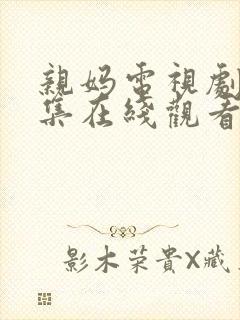 親妈電視劇
集在綫觀看
影木荣貴X藏